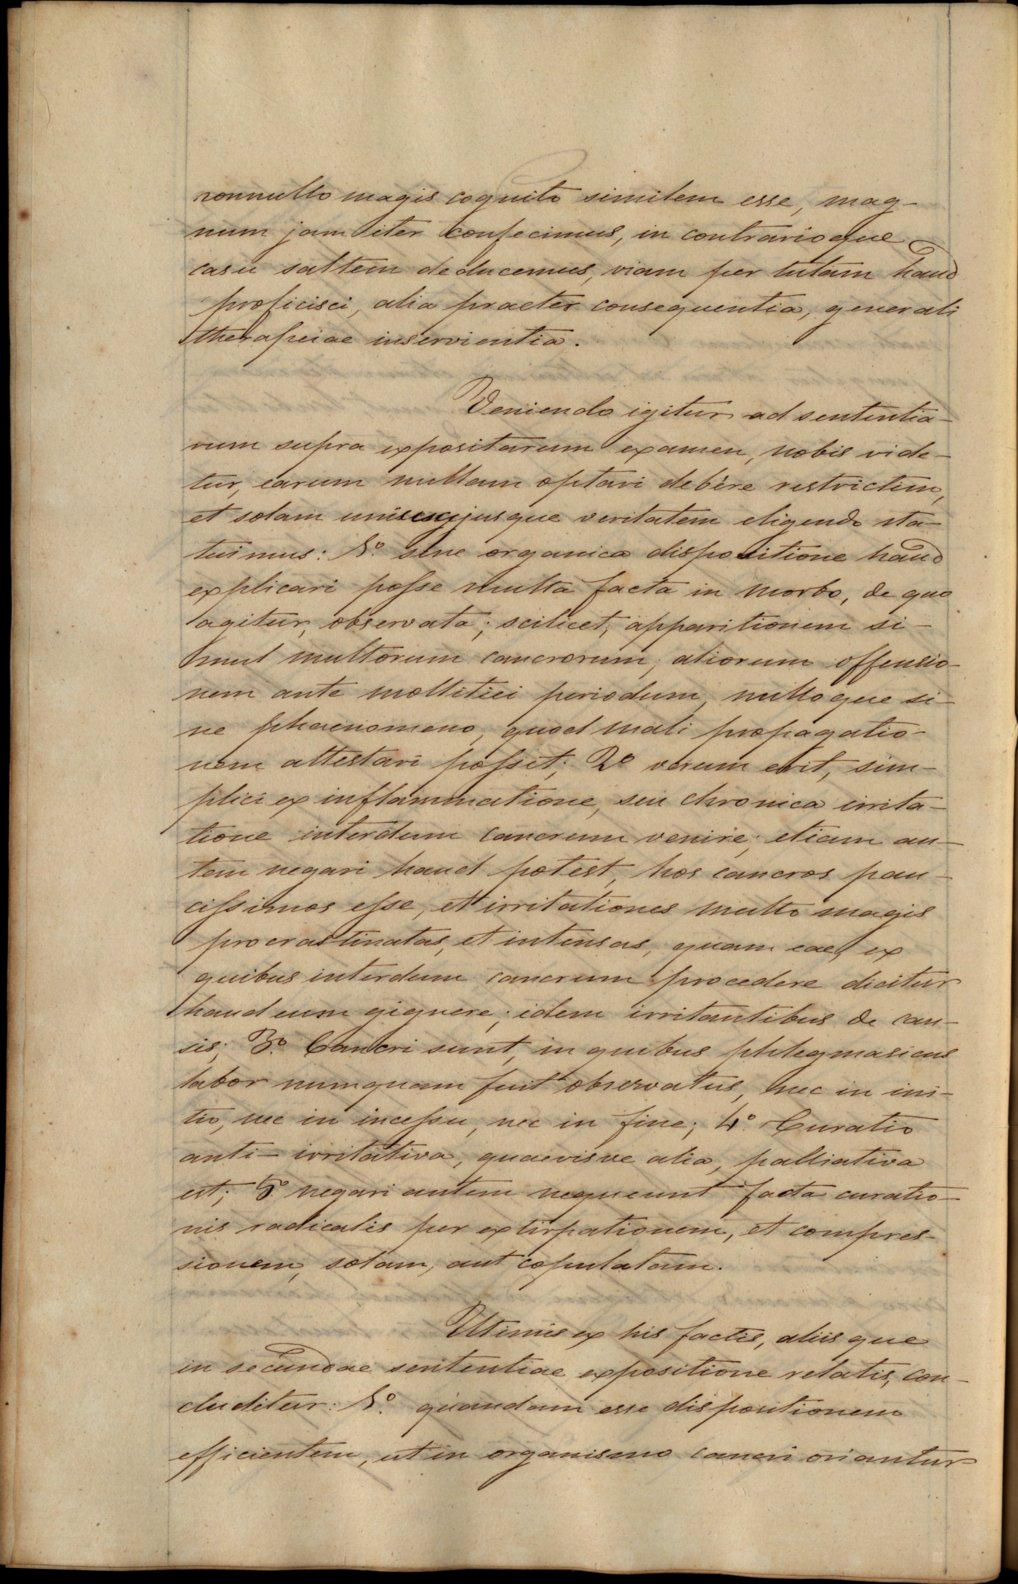 nonnullo magis cognito similem esse, mag-
num jam iter confecimus, in contrarioque
casu saltem deducemus, viam per tutam haud
proficisci, alia praeter consequentia, generali
therapeiae inservientia.
Veniendo igitur ad sententia-
rum supra expositarum examen, nobis vide-
tur, earum nullam optari debere restrictim,
et solam uniscujusque veritatem eligendo sta-
tuimus: 1.º sine organica dispositione haud
explicari posse multa facta in morbo, de quo
agitur, observata; scilicet, apparitionem si-
mul multorum cancrorum, aliorum offensio-
nem ante mollitiei periodum, nulloque si-
ne phaenomeno, quod mali propagatio-
nem attestari posset; 2º verum erit, sim-
plici ex inflammatione, seu chronica irrita-
tione interdum cancrum venire; etiam au-
tem negari haud potest, hos cancros pau-
cissimos esse, et irritationes multo magis
procrastinatas, et intensas, quam eae, ex
quibus interdum cancrum procedere dicitur
haud eum gignere; idem irritantibus de cau-
sis; 3.º Cancri sunt, in quibus phlegmasicus
labor numquam fuit observatus, nec in ini-
tio, nec in incessu, nec in fine; 4.º Curatio
anti-irritativa, quaevisve alia, palliativa
est; 5º negari autem nequeunt facta curatio-
nis radicalis per extirpationem, et compres-
sionem, solam, aut copulatam.
Ultimis ex his factis, aliisque
in secundae sententiae expositione relatis, con-
cluditur: 1.º quandam esse dispositionem
efficientem, ut in organismo cancri oriantur